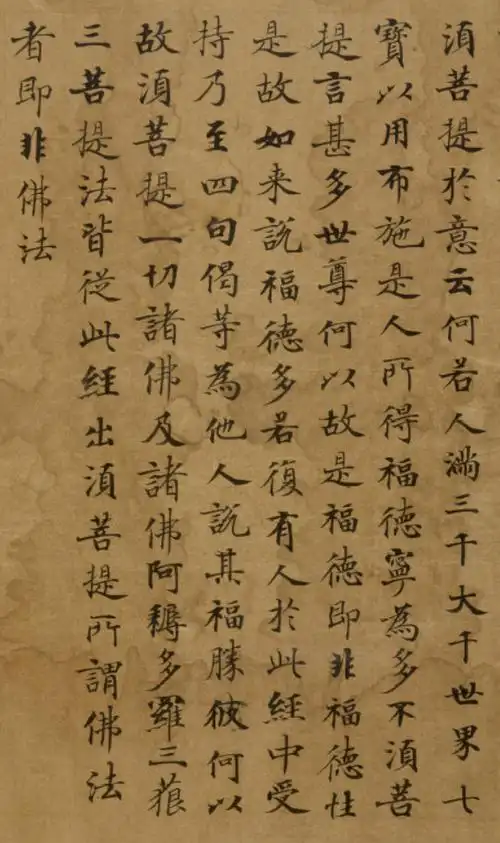 須菩提於意云何若人滿三千大千世界七
寶以用布施是人所得福德寧為多不須菩
提言甚多世尊何以故是福德即非福德性
是故如来說福德多若復有人於此經中受
持乃至四句偈等為他人說其福勝彼何以
故須菩提一切諸佛及諸佛阿耨多羅三藐
三菩提法皆從此經出須菩提所謂佛法
者即非佛法